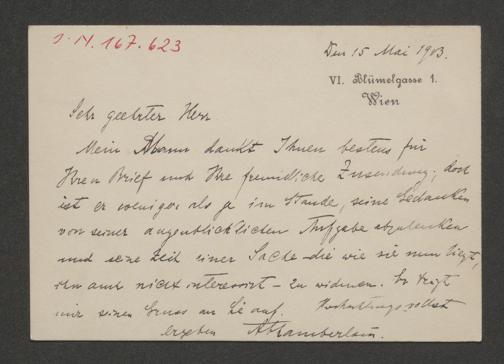 I.N. 167.623
Den 15 Mai 1903.
VI. Blümelgasse 1.
Wien
Sehr geehrter Herr
Mein Mann dankt Ihnen bestens für
Ihren Brief und Ihre freundliche Zusendung; doch
ist er weniger als je im Stande, seine Gedanken
von seiner augenblicklichen Aufgabe abzulenken
und seine Zeit einer Sache – die wie sie nun liegt,
ihn auch nicht interessirt – zu widmen. Er trägt
mir seinen Gruss an Sie auf. Hochachtungsvollst
ergeben AChamberlain.